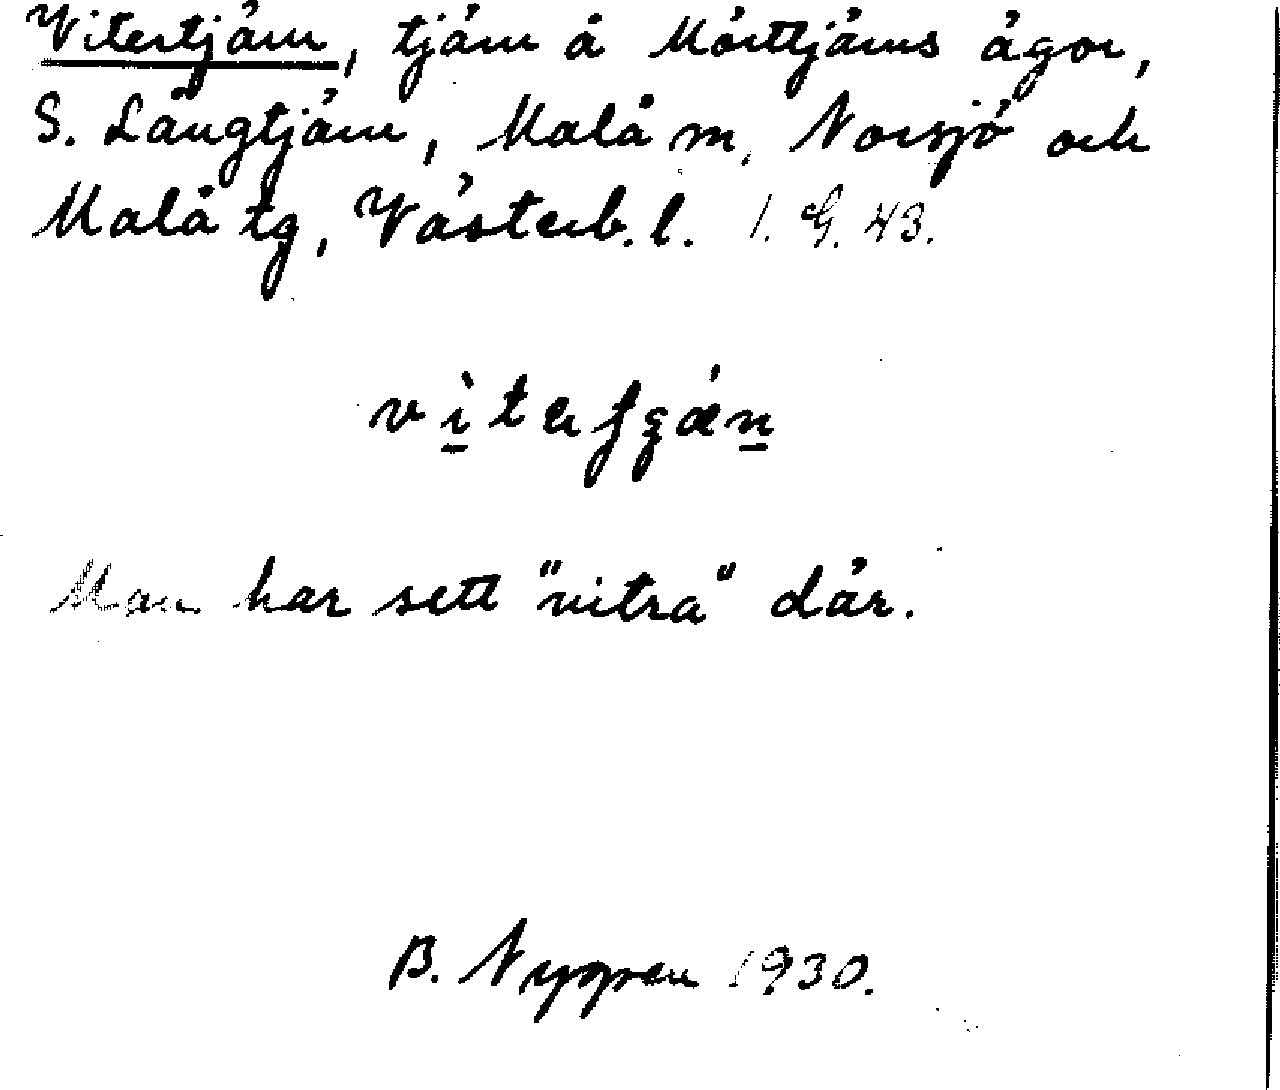 Vitertjärn, tjärn å Mörttjärns ägor,
S. Långtjärn, Malå sn, Norsjö och
Malå tg, Västerb. l. I. G. 43.
Man har sett "vitra" där.
B. Nygren 1930.